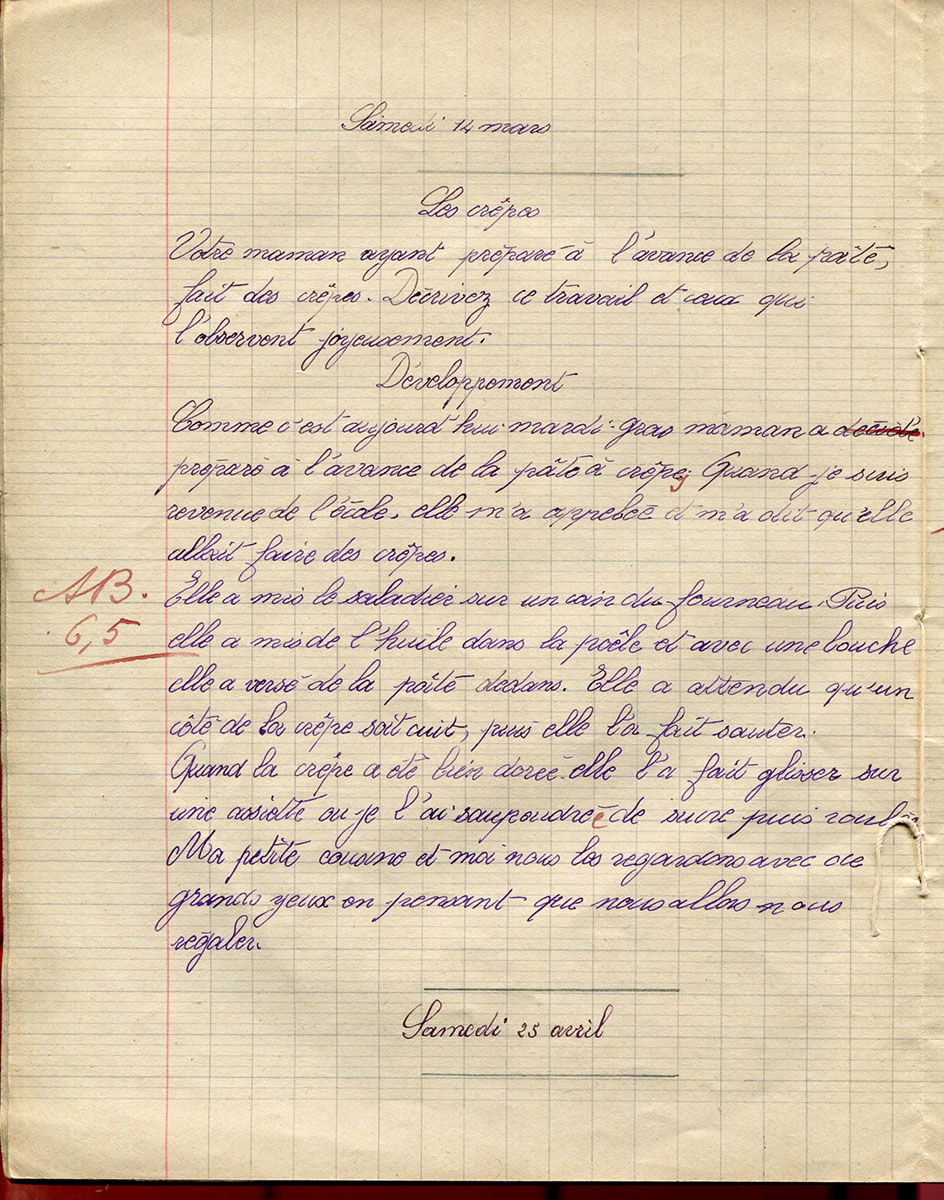 Samedi 14 mars
Les crêpes
Votre maman ayant préparé à l'avance de la pâte,
fait des crêpes. Décrivez ce travail et ceux qui
l'observent joyeusement.
Développement
Comme c'est aujourd'hui mardi-gras maman a décidé
préparé à l'avance de la pâte à crêpes Quand je suis
revenue de l'école, elle m'a appelée et m'a dit qu'elle
allait faire des crêpes.
AB.
Elle a mis le saladier sur un coin du fourneau. Puis
6,5
elle a mis de l'huile dans la poêle et avec une louche
elle a versé de la pâte dedans. Elle a attendu qu'un
côté de la crêpe soit cuit, puis elle l'a fait sauter.
Quand la crêpe a été bien dorée elle l'a fait glisser sur
une assiette ou je l'ai saupoudrée de sucre puis
Ma petite cousine et moi nous les regardons avec de
grands yeux en pensant que nous allons nous
régaler.
Samedi 25 avril